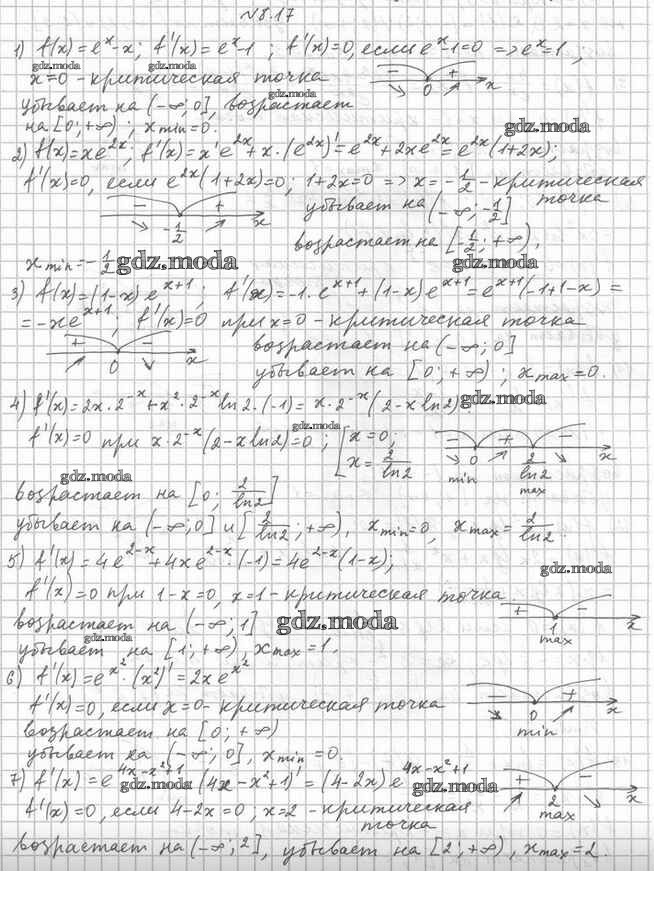 №8.17
1) f(x)=eˣ-x; f'(x)=eˣ-1; f'(x)=0, если eˣ-1=0 => eˣ=1;
gdz.moda gdz.moda
x=0 - критическая точка
− + 0 x
gdz.moda
убывает на (-∞;0], возрастает
на [0;+∞); x min=0.
gdz.moda
2) f(x)=xe^{2x}; f'(x)=x'e^{2x}+x·(e^{2x})'=e^{2x}+2xe^{2x}=e^{2x}(1+2x);
f'(x)=0, если e^{2x}(1+2x)=0; 1+2x=0 => x=-1/2 - критическая
точка
− + -1/2 x
убывает на (-∞;-1/2]
возрастает на [-1/2;+∞),
x min=-1/2
gdz.moda gdz.moda
3) f(x)=(1-x)e^{x+1}; f'(x)=-1·e^{x+1}+(1-x)e^{x+1}=e^{x+1}(-1+1-x)=
=-xe^{x+1}; f'(x)=0 при x=0 - критическая точка
+ − 0 x
возрастает на (-∞;0]
убывает на [0;+∞); x max=0.
4) f'(x)=2x·2^{-x}+x²·2^{-x}ln2·(-1)=x·2^{-x}(2-xln2)
gdz.moda
gdz.moda
f'(x)=0 при x·2^{-x}(2-xln2)=0; [x=0;
x=2/ln2
− + − 0 2/ln2 x
min max
gdz.moda
возрастает на [0; 2/ln2]
убывает на (-∞;0] и [2/ln2;+∞), x min=0, x max=2/ln2.
5) f'(x)=4e^{2-x}+4xe^{2-x}·(-1)=4e^{2-x}(1-x);
gdz.moda
f'(x)=0 при 1-x=0, x=1 - критическая точка
+ − 1 x
max
возрастает на (-∞;1]
gdz.moda
gdz.moda
убывает на [1;+∞), x max=1.
6) f'(x)=e^{x²}·(x²)'=2xe^{x²}
f'(x)=0, если x=0- критическая точка
− + 0 x
min
возрастает на [0;+∞)
убывает на (-∞;0], x min=0.
7) f'(x)=e^{4x-x²+1}·(4x-x²+1)'=(4-2x)e^{4x-x²+1}
gdz.moda gdz.moda
+ − 2 x
max
f'(x)=0, если 4-2x=0; x=2 - критическая
точка
возрастает на (-∞;2], убывает на [2;+∞), x max=2.